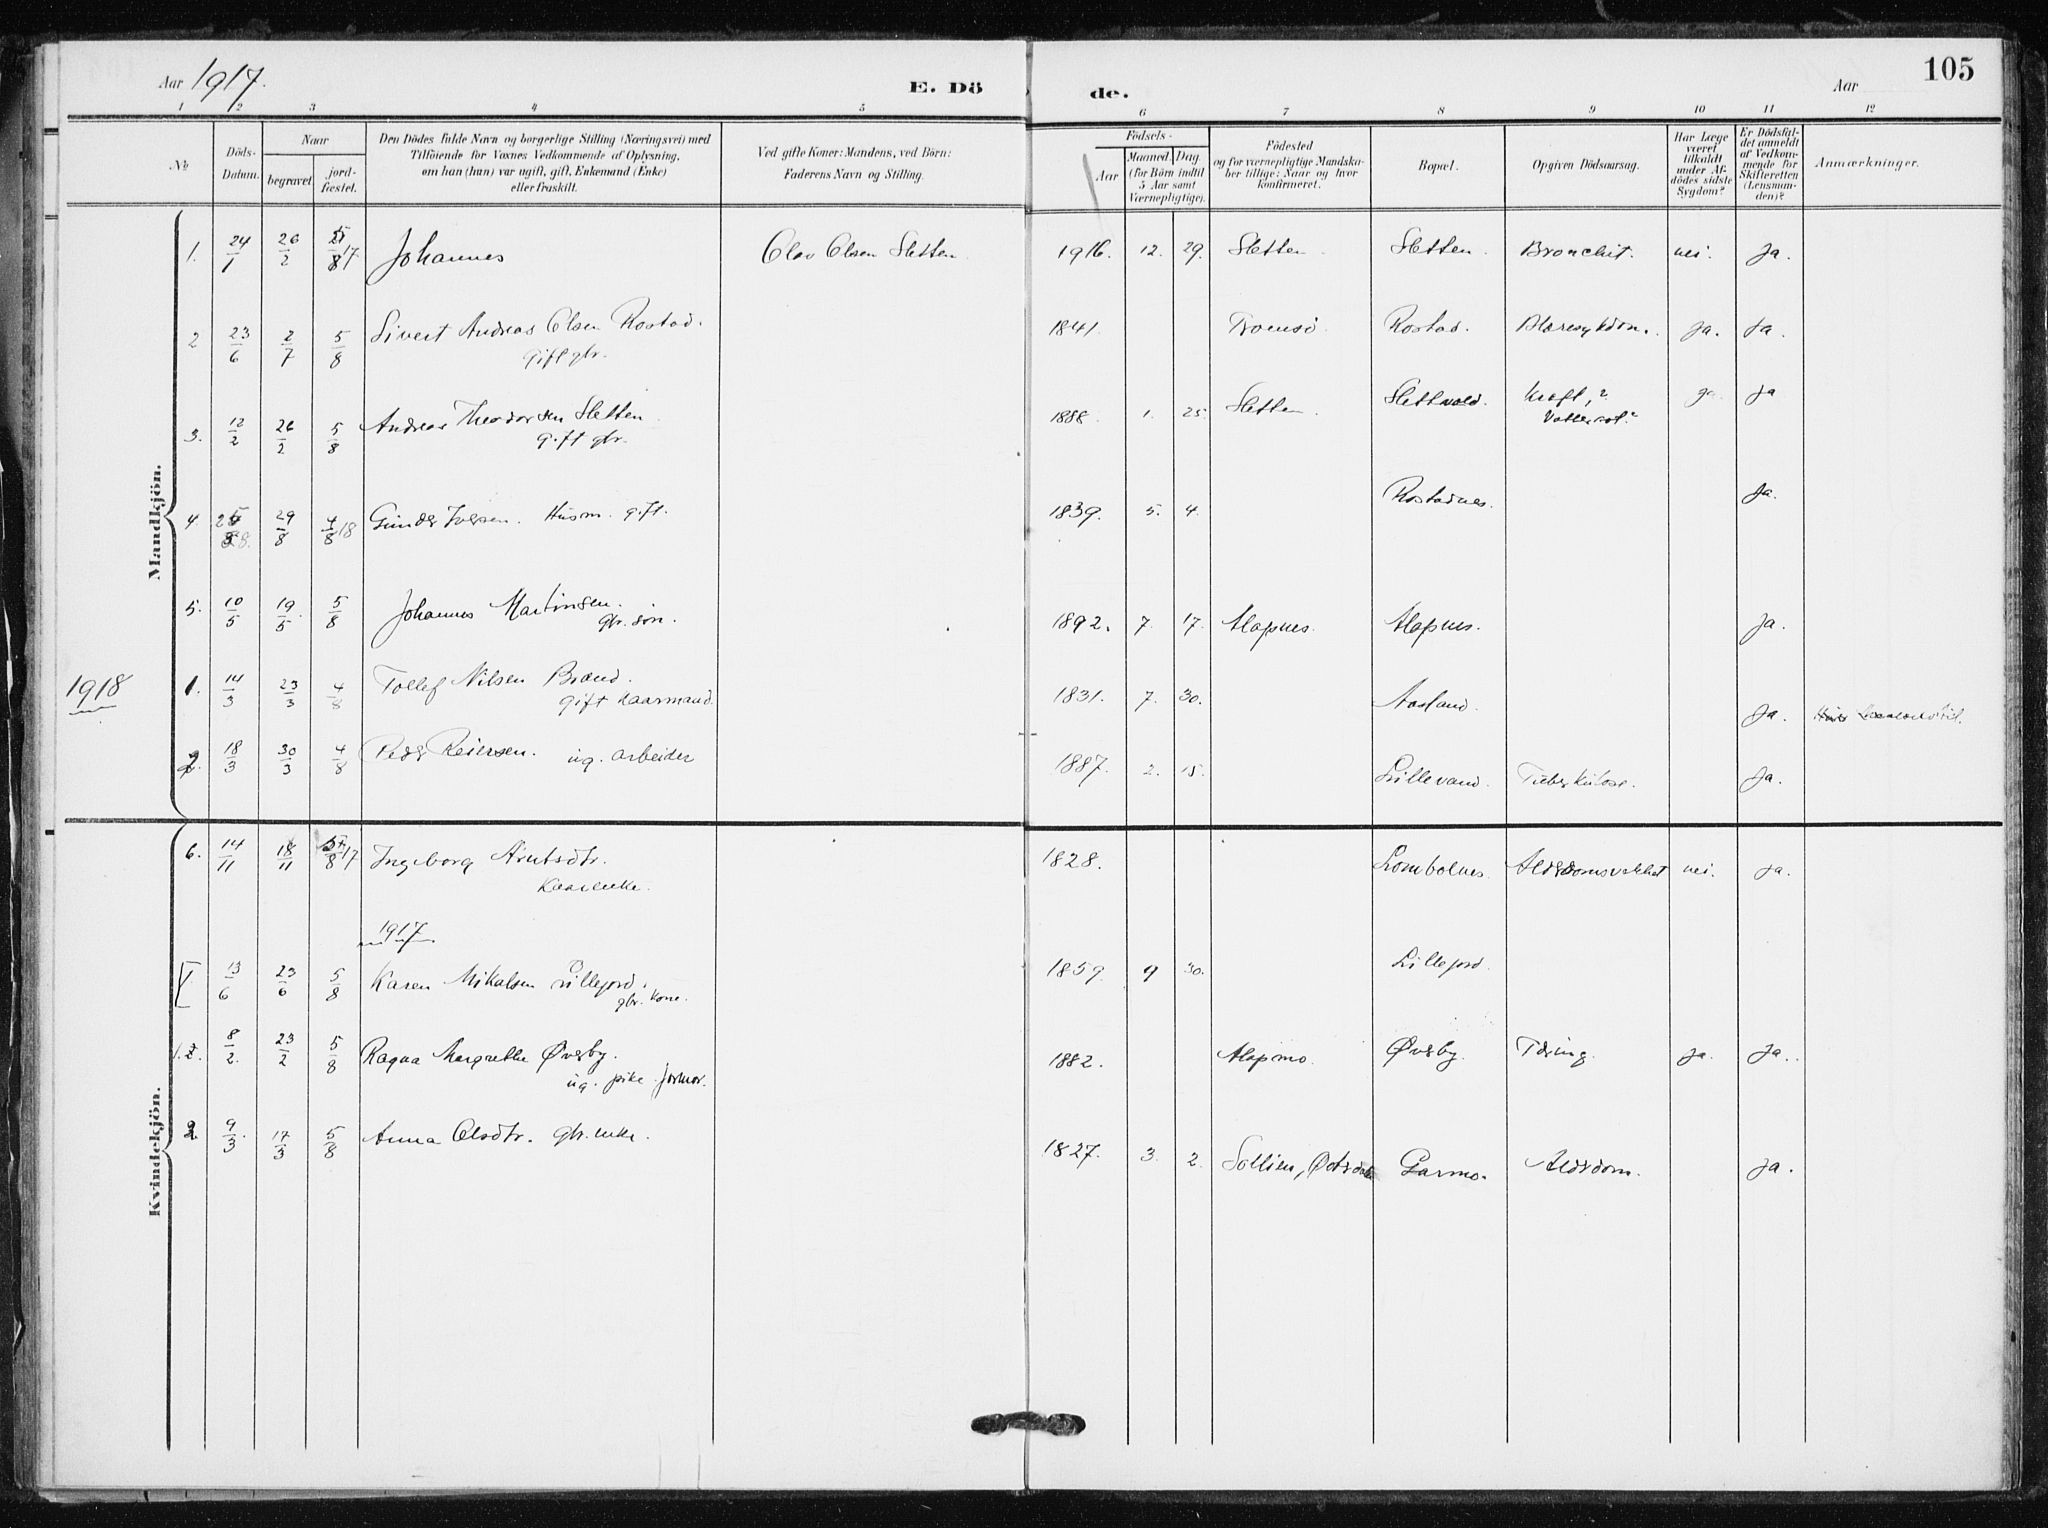 Aar 1917.
E. Dö
de.
Aar
105
1 2 3 4 5 6 7 8 9 10 11 12
No
Döds-
Datum.
Naar
begravet.
jord-
fæstet.
Den Dödes fulde Navn og borgerlige Stilling (Næringsvei) med
Tilföiende for Voxnes Vedkommende af Oplysning,
om han (hun) var ugift, gift, Enkemand (Enke)
eller fraskilt.
Ved gifte Koner: Mandens, ved Börn:
Faderens Navn og Stilling.
Födsels-
Aar
Maaned. Dag.
(for Börn indtil
5 Aar samt
Værnepligtige).
Födested
og for værnepligtige Mandska-
ber tillige: Naar og hvor
konfirmeret.
Bopæl.
Opgiven Dödsaarsag.
Har Læge
været
tilkaldt
under Af-
dödes sidste
Sygdom?
Er Dödsfal-
det anmeldt
af Vedkom-
mende for
Skifteretten
(Lensman-
den)?
Anmærkninger.
Mandkjön.
1. 24/1 26/2 5/8 17. Johannes Olav Olsen Sletten. 1916. 12. 29. Sletten. Sletten. Bronchit. nei. Ja.
2 23/6 2/7 5/8 Sivert Andreas Olsen Rostad. 1841. Tromsö. Rostad. Blæresykdom. Ja. Ja.
Gift gbr.
3. 12/2 26/2 5/8 Andreas Theodorsen Sletten. 1888. 1. 25. Sletten. Slettvold. Kræft,? ja. Ja
gift gbr.
4. 29/8 4/8 18 Gunder Iversen. Husm. gift. 1839. 5. 4. Rostadnes. Ja.
5. 10/5 19/5 5/8 Johannes Martinsen. 1892. 7. 17. Alapnes. Alapnes. Ja.
gbr. søn.
1918
1. 14/3 23/3 4/8 Tollef Nilsen Brand. 1831. 7. 30. Aasland. Ja.
gift kaarmand.
2. 18/3 30/3 4/8 Peder Reiersen. ug. arbeider 1887. 2. 15. Lillevand. Tuberkulose. Ja.
Kvindekjön.
6. 14/11 18/11 5/8 17 Ingeborg Arntsdtr. 1828. Lombolnes. Alderdomssvakhet nei. Ja.
Kaarenke.
1917
I 13/6 23/6 5/8 Karen Mikalsen Lillejord. 1859. 9 30. Lillejord.
gbr. kone.
1.2. 8/2. 23/2 5/8 Ragna Margrethe Øverby. 1882. Alapmo. Øverby. Tæring. Ja. Ja.
ug. pike. jormor.
2. 9/3. 17/3 5/8 Anna Olsdtr. gbr. enke. 1827. 3. 2. Sollien, Østerdalen Garmo. Alderdom. Ja.